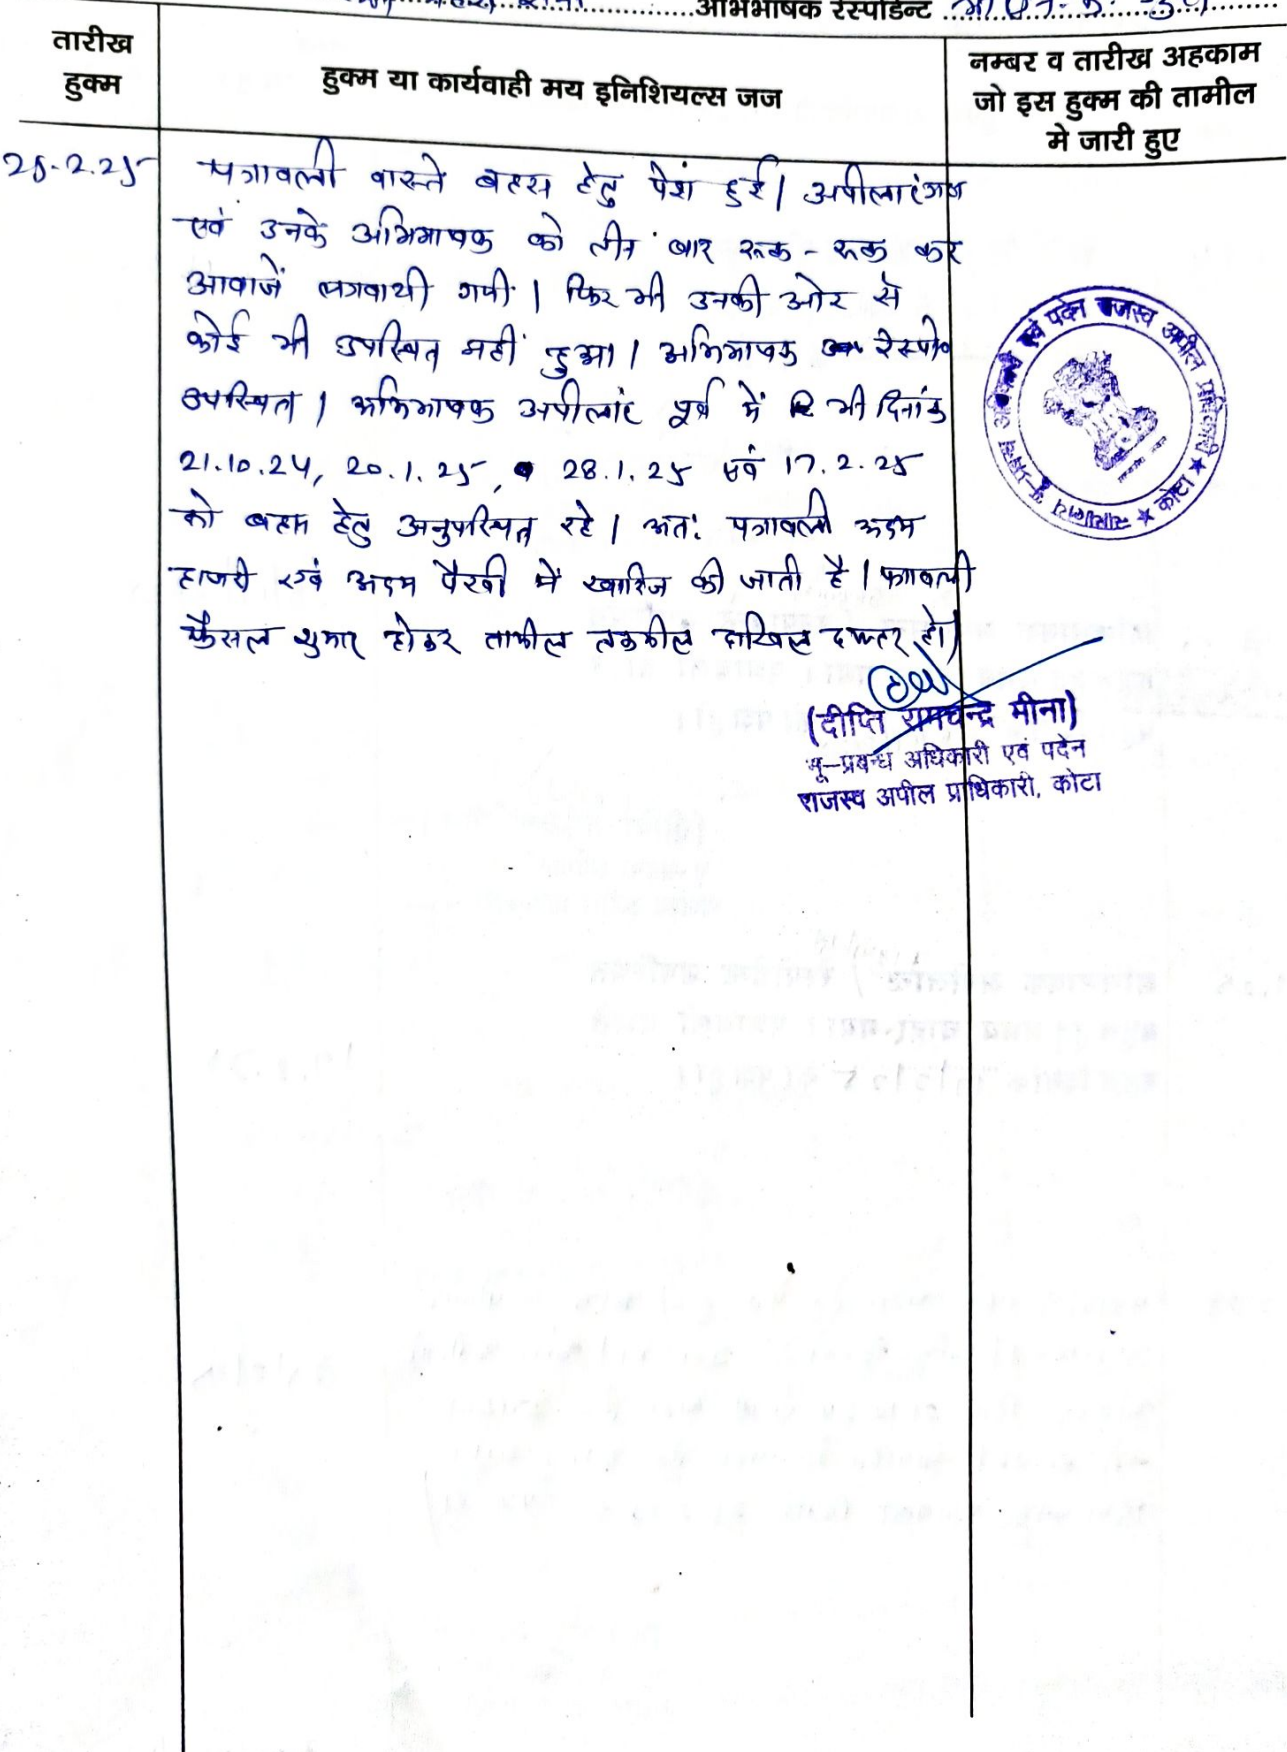 अभिभाषक रेस्पोडेन्ट
तारीख हुक्म
हुक्म या कार्यवाही मय इनिशियल्स जज
नम्बर व तारीख अहकाम
जो इस हुक्म की तामील
मे जारी हुए
25-2.25
पत्रावली वास्ते बहस हेतु पेश हुई। अपीलांटगण
एवं उनके अभिभाषक को तीन बार रूक-रूक कर
आवाजें लगवायी गयी। फिर भी उनकी ओर से
कोई भी उपस्थित नहीं हुआ। अभिभाषक रेस्पो०
उपस्थित। अभिभाषक अपीलांट पूर्व में भी दिनांक
21.10.24, 20.1.25, 28.1.25 एवं 17.2.25
को बहस हेतु अनुपस्थित रहे। अतः पत्रावली अदम
हाजरी एवं अदम पैरवी में खारिज की जाती है। पत्रावली
फैसल शुमार होकर तामील तकमील दाखिल दफ्तर हो।
(दीप्ति रामचन्द्र मीना)
भू-प्रबन्ध अधिकारी एवं पदेन
राजस्व अपील प्राधिकारी, कोटा
न्यायालय भू-प्रबन्ध अधिकारी एवं पदेन राजस्व अपील प्राधिकारी ★ कोटा ★